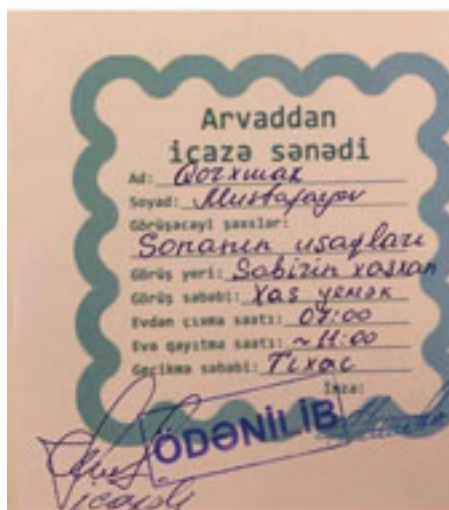 Arvaddan
içazə sənədi
Ad: Qorxmaz
Soyad: Mustafayev
Görüşəcəyi şəxslər:
Sonanın uşaqları
Görüş yeri: Sabirin xaşxan
Görüş səbəbi: Xaş yemək
Evdən çıxma saatı: 07:00
Evə qayıtma saatı: ~ 11:00
Gecikmə səbəbi: Tıxac
İmza:
ÖDƏNİLİB